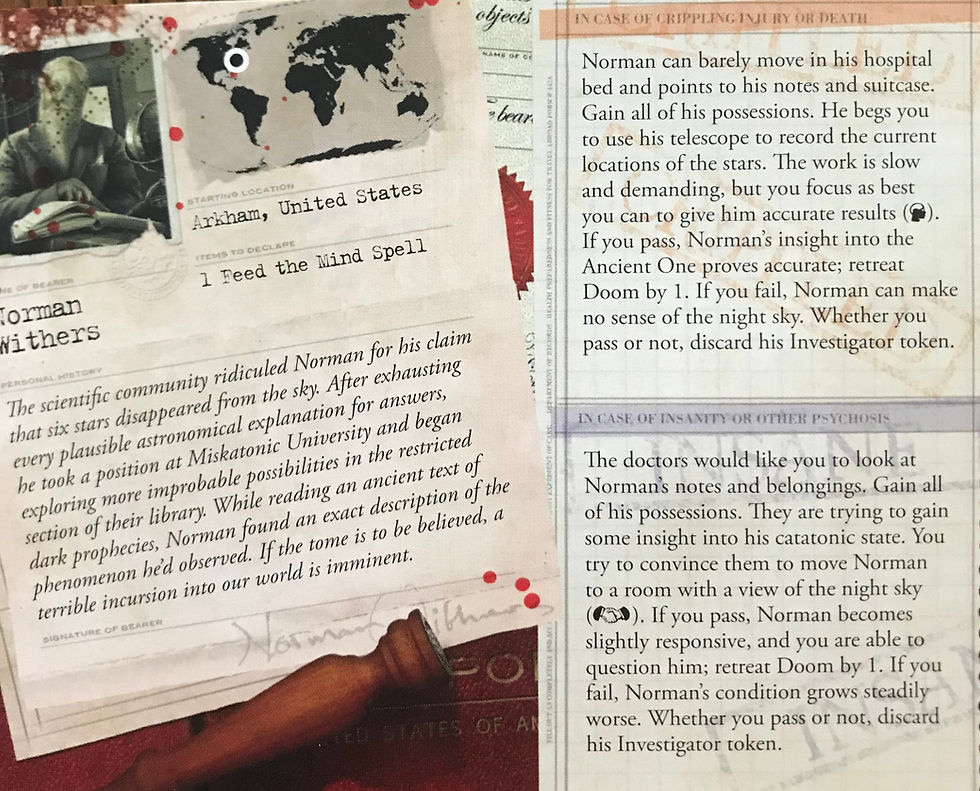 STARTING LOCATION
Arkham, United States
ITEMS TO DECLARE
1 Feed the Mind Spell
NAME OF BEARER
Norman
Withers
PERSONAL HISTORY
The scientific community ridiculed Norman for his claim
that six stars disappeared from the sky. After exhausting
every plausible astronomical explanation for answers,
he took a position at Miskatonic University and began
exploring more improbable possibilities in the restricted
section of their library. While reading an ancient text of
dark prophecies, Norman found an exact description of the
phenomenon he'd observed. If the tome is to be believed, a
terrible incursion into our world is imminent.
SIGNATURE OF BEARER
Norman Withers
objects
bear
IN CASE OF CRIPPLING INJURY OR DEATH
Norman can barely move in his hospital
bed and points to his notes and suitcase.
Gain all of his possessions. He begs you
to use his telescope to record the current
locations of the stars. The work is slow
and demanding, but you focus as best
you can to give him accurate results ( ).
If you pass, Norman's insight into the
Ancient One proves accurate; retreat
Doom by 1. If you fail, Norman can make
no sense of the night sky. Whether you
pass or not, discard his Investigator token.
IN CASE OF INSANITY OR OTHER PSYCHOSIS
The doctors would like you to look at
Norman's notes and belongings. Gain all
of his possessions. They are trying to gain
some insight into his catatonic state. You
try to convince them to move Norman
to a room with a view of the night sky
( ). If you pass, Norman becomes
slightly responsive, and you are able to
question him; retreat Doom by 1. If you
fail, Norman's condition grows steadily
worse. Whether you pass or not, discard
his Investigator token.